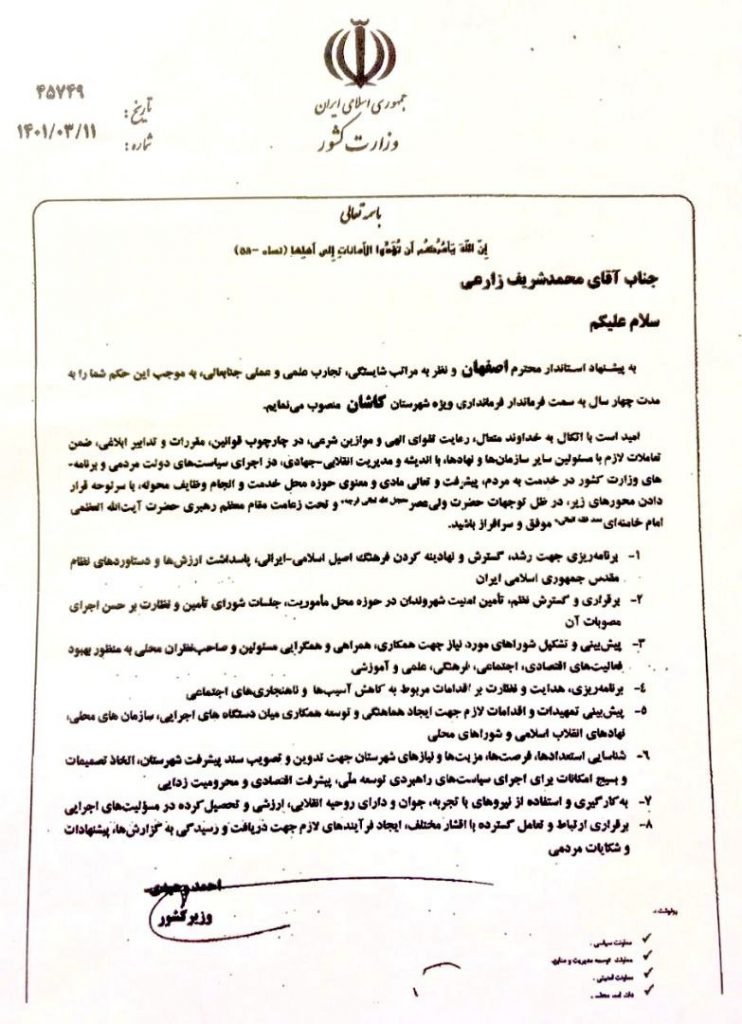 جمهوری اسلامی ایران
وزارت کشور
۴۵۷۴۹
تاریخ:
۱۴۰۱/۰۳/۱۱
شماره:
باسمه تعالی
إِنَّ اللَّهَ يَأْمُرُكُمْ أَن تُؤَدُّوا الأَمَانَاتِ إِلَى أَهْلِهَا (نساء -۵۸)
جناب آقای محمدشریف زارعی
سلام علیکم
به پیشنهاد استاندار محترم اصفهان و نظر به مراتب شایستگی، تجارب علمی و عملی جنابعالی، به موجب این حکم شما را به
مدت چهار سال به سمت فرماندار فرمانداری ویژه شهرستان کاشان منصوب می‌نمایم.
امید است با اتکال به خداوند متعال، رعایت تقوای الهی و موازین شرعی، در چارچوب قوانین، مقررات و تدابیر ابلاغی، ضمن
تعاملات لازم با مسئولین سایر سازمان‌ها و نهادها، با اندیشه و مدیریت انقلابی-جهادی، در اجرای سیاست‌های دولت مردمی و برنامه-
های وزارت کشور در خدمت به مردم، پیشرفت و تعالی مادی و معنوی حوزه محل خدمت و انجام وظایف محوله، با سرلوحه قرار
دادن محورهای زیر، در ظل توجهات حضرت ولی‌عصر و تحت زعامت مقام معظم رهبری حضرت آیت‌الله العظمی
امام خامنه‌ای موفق و سرافراز باشید.
۱- برنامه‌ریزی جهت رشد، گسترش و نهادینه کردن فرهنگ اصیل اسلامی-ایرانی، پاسداشت ارزش‌ها و دستاوردهای نظام
مقدس جمهوری اسلامی ایران
۲- برقراری و گسترش نظم، تأمین امنیت شهروندان در حوزه محل مأموریت، جلسات شورای تأمین و نظارت بر حسن اجرای
مصوبات آن
۳- پیش‌بینی و تشکیل شوراهای مورد نیاز جهت همکاری، همراهی و همگرایی مسئولین و صاحب‌نظران محلی به منظور بهبود
فعالیت‌های اقتصادی، اجتماعی، فرهنگی، علمی و آموزشی
۴- برنامه‌ریزی، هدایت و نظارت بر اقدامات مربوط به کاهش آسیب‌ها و ناهنجاری‌های اجتماعی
۵- پیش‌بینی تمهیدات و اقدامات لازم جهت ایجاد هماهنگی و توسعه همکاری میان دستگاه های اجرایی، سازمان های محلی،
نهادهای انقلاب اسلامی و شوراهای محلی
۶- شناسایی استعدادها، فرصت‌ها، مزیت‌ها و نیازهای شهرستان جهت تدوین و تصویب سند پیشرفت شهرستان، اتخاذ تصمیمات
و بسیج امکانات برای اجرای سیاست‌های راهبردی توسعه ملّی، پیشرفت اقتصادی و محرومیت زدایی
۷- به‌کارگیری و استفاده از نیروهای با تجربه، جوان و دارای روحیه انقلابی، ارزشی و تحصیل‌کرده در مسؤلیت‌های اجرایی
۸- برقراری ارتباط و تعامل گسترده با اقشار مختلف، ایجاد فرآیندهای لازم جهت دریافت و رسیدگی به گزارش‌ها، پیشنهادات
و شکایات مردمی
احمد وحیدی
وزیر کشور
رونوشت:
✓ معاونت سیاسی.
✓ معاونت توسعه مدیریت و منابع.
✓ معاونت امنیتی.
✓